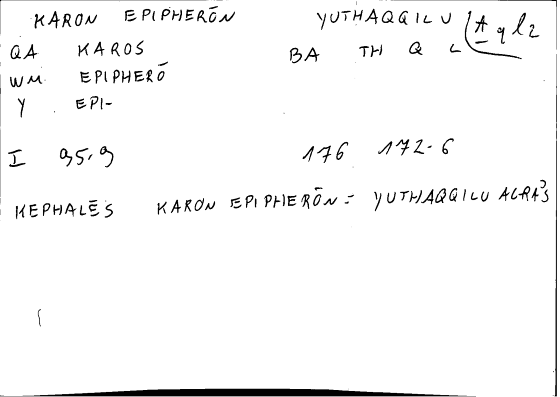 KARON EPIPHERŌN YUTHAQQILU A q l 2
QA KAROS BA TH Q L
WM EPIPHERŌ
Y EPI-
I 95.9 176 172-6
KEPHALĒS KARON EPIPHERŌN = YUTHAQQILU ALRA'S